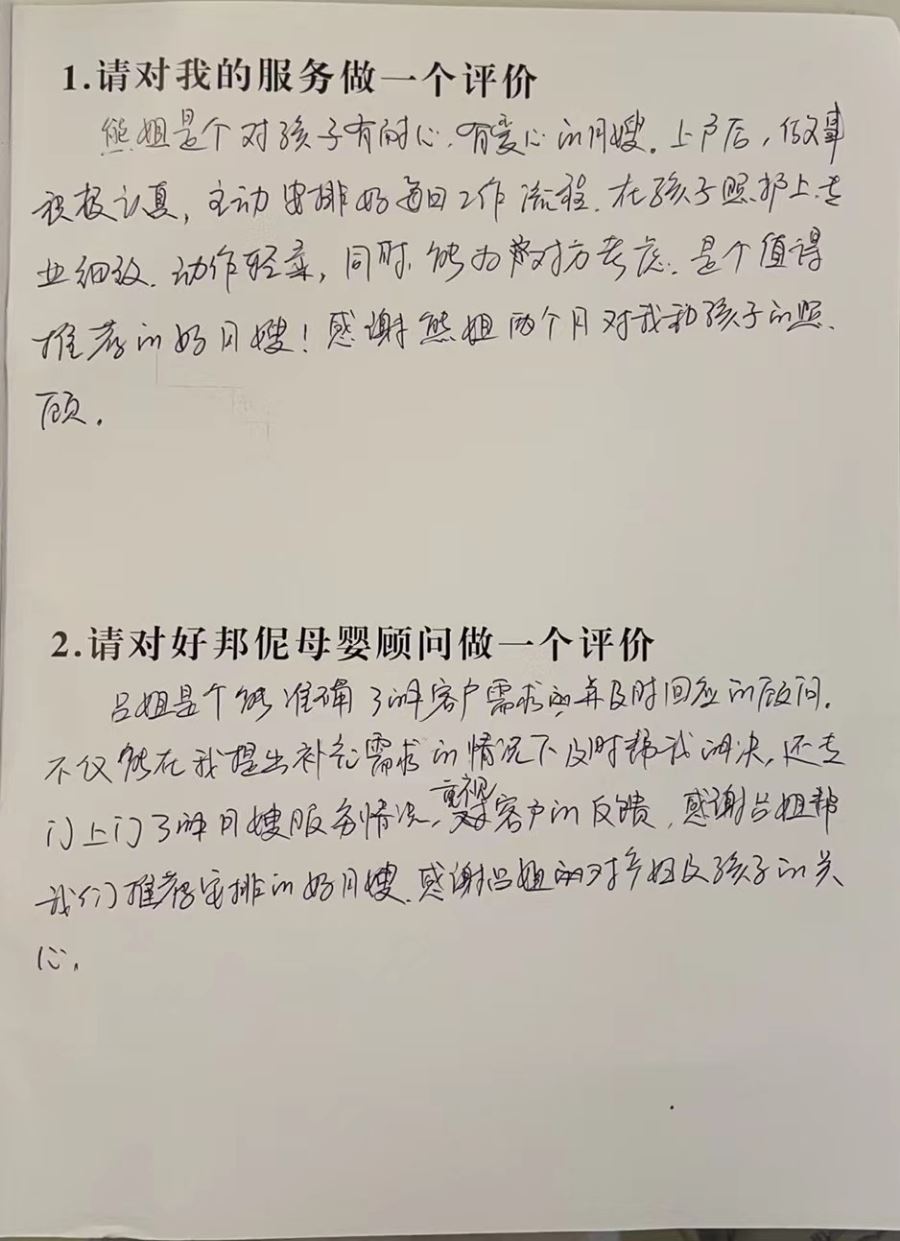 1.请对我的服务做一个评价
熊姐是个对孩子有耐心、有爱心的月嫂。上户后，做事
积极认真，主动安排好每日工作流程。在孩子照护上专
业细致、动作轻柔，同时，能为对方考虑。是个值得
推荐的好月嫂！感谢熊姐两个月对我和孩子的照
顾。
2.请对好邦伲母婴顾问做一个评价
吕姐是个能准确了解客户需求并及时回应的顾问。
不仅能在我提出补充需求的情况下及时帮我解决，还专
门上门了解月嫂服务情况，重视客户的反馈，感谢吕姐帮
我们推荐安排的好月嫂，感谢吕姐对产妇及孩子的关
心。